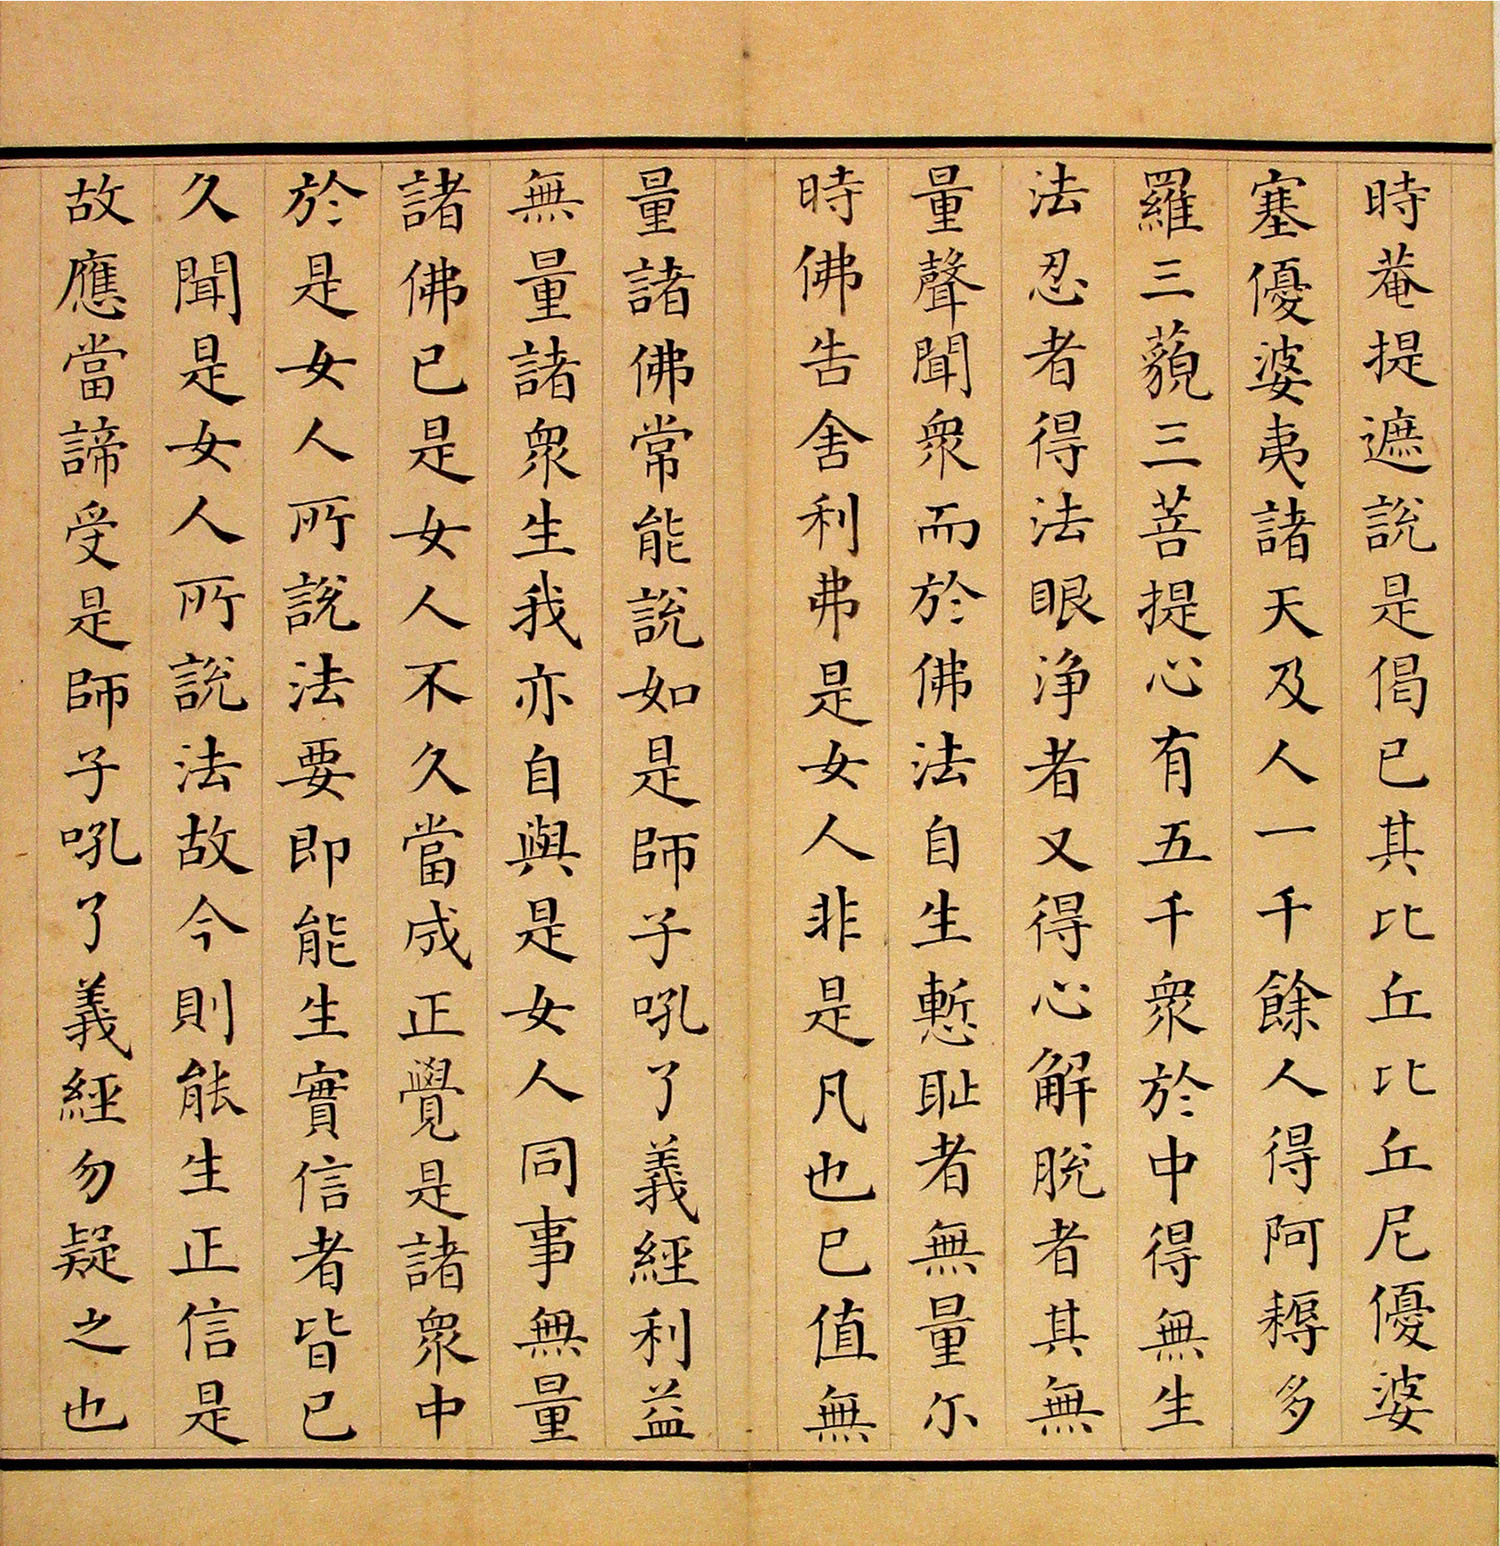 時菴提遮說是偈已其比丘比丘尼優婆
塞優婆夷諸天及人一千餘人得阿耨多
羅三藐三菩提心有五千衆於中得無生
法忍者得法眼淨者又得心解脫者其無
量聲聞衆而於佛法自生慙耻者無量尓
時佛告舍利弗是女人非是凡也已值無
量諸佛常能說如是師子吼了義經利益
無量諸衆生我亦自與是女人同事無量
諸佛已是女人不久當成正覺是諸衆中
於是女人所說法要即能生實信者皆已
久聞是女人所說法故今則能生正信是
故應當諦受是師子吼了義經勿疑之也